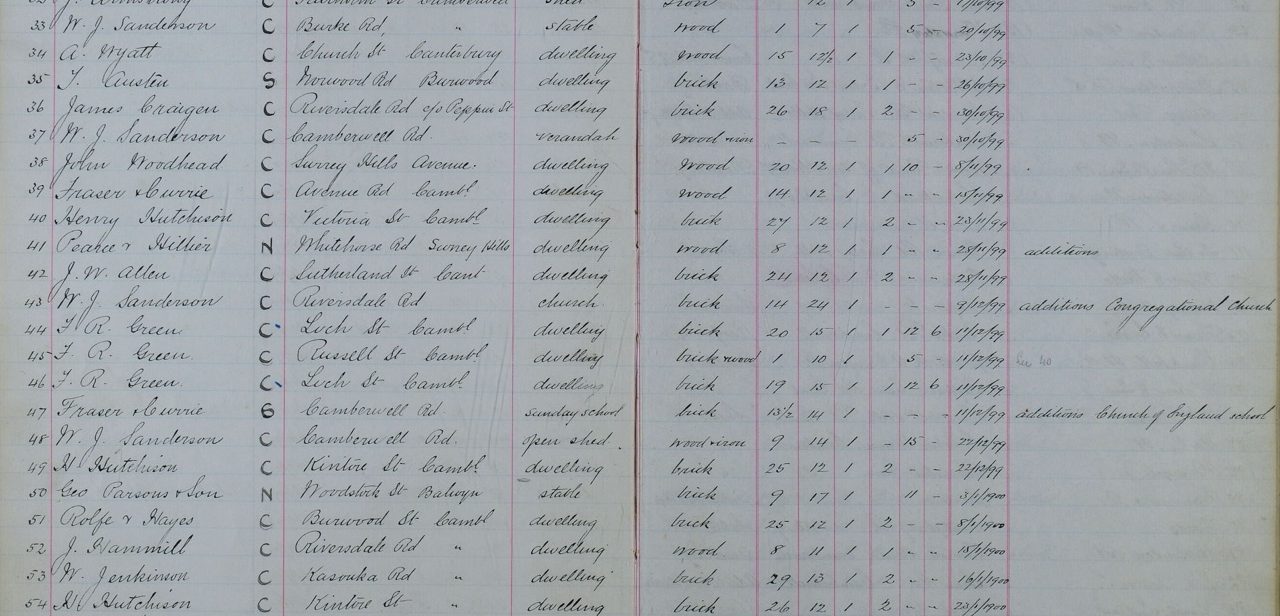 33 W. J. Sanderson C Burke Rd, " stable wood 1 7 1 5 - 20/10/99
34 A. Wyatt C Church St Canterbury dwelling wood 15 12½ 1 1 - - 23/10/99
35 T. Austen S Norwood Rd Burwood dwelling brick 13 12 1 1 - - 26/10/99
36 James Craigen C Riversdale Rd c/o Peppin St dwelling brick 26 18 1 2 - - 30/10/99
37 W. J. Sanderson C Camberwell Rd. verandah wood + iron - - - 5 - 30/10/99
38 John Woodhead C Surrey Hills Avenue. dwelling wood 20 12 1 1 10 - 8/11/99
39 Fraser & Currie C Avenue Rd Cambl dwelling wood 14 12 1 1 - - 15/11/99
40 Henry Hutchison C Victoria St Cambl dwelling brick 27 12 1 2 - - 23/11/99
41 Pearce & Hillier N Whitehorse Rd Surrey Hills dwelling wood 8 12 1 1 - - 28/11/99 additions
42 J. W. Allen C Sutherland St Cant dwelling brick 24 12 1 2 - - 28/11/99
43 W. J. Sanderson C Riversdale Rd church brick 14 24 1 - - - 9/12/99 additions Congregational Church
44 F. R. Green C Loch St Cambl dwelling brick 20 15 1 1 12 6 11/12/99
45 F. R. Green C Russell St Cambl dwelling brick + wood 1 10 1 5 - 11/12/99 40
46 F. R. Green C Loch St Cambl dwelling brick 19 15 1 1 12 6 11/12/99
47 Fraser & Currie Camberwell Rd. sunday school brick 13½ 14 1 - - - 11/12/99 additions Church of England school
48 W. J. Sanderson C Camberwell Rd. open shed. wood + iron 9 14 1 - 15 - 22/12/99
49 H. Hutchison C Kintore St Cambl dwelling brick 25 12 1 2 - - 22/12/99
50 Geo Parsons & Son N Woodstock St Balwyn stable brick 9 17 1 11 - 3/1/1900
51 Rolfe & Hayes C Burwood St Cambl dwelling brick 25 12 1 2 - - 8/1/1900
52 J. Hammill C Riversdale Rd " dwelling wood 8 11 1 1 - - 15/1/1900
53 W. Jenkinson C Kasouka Rd " dwelling brick 29 13 1 2 - - 16/1/1900
54 H. Hutchison C Kintore St " dwelling brick 26 12 1 2 - - 23/1/1900